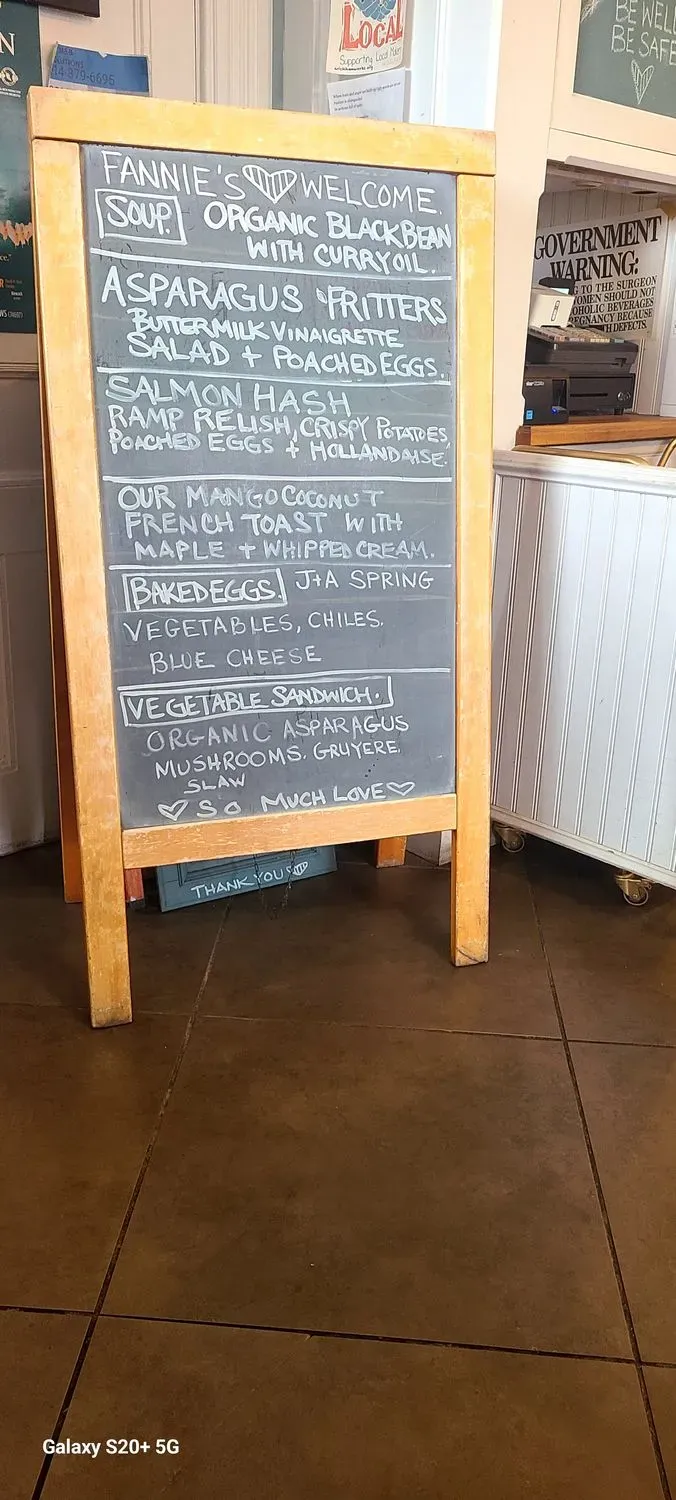 N
14-379-6695
LOCAL
Supporting Local
BE WELL
BE SAFE
FANNIE'S WELCOME.
SOUP. ORGANIC BLACK BEAN
WITH CURRY OIL.
ASPARAGUS FRITTERS
BUTTERMILK VINAIGRETTE
SALAD + POACHED EGGS.
SALMON HASH
RAMP RELISH, CRISPY POTATOES,
POACHED EGGS + HOLLANDAISE.
OUR MANGO COCONUT
FRENCH TOAST WITH
MAPLE + WHIPPED CREAM.
BAKED EGGS. J+A SPRING
VEGETABLES, CHILES.
BLUE CHEESE
VEGETABLE SANDWICH.
ORGANIC ASPARAGUS
MUSHROOMS. GRUYERE.
SLAW
SO MUCH LOVE
THANK YOU
GOVERNMENT
WARNING:
G TO THE SURGEON
OMEN SHOULD NOT
OHOLIC BEVERAGES
EGNANCY BECAUSE
TH DEFECTS.
Galaxy S20+ 5G